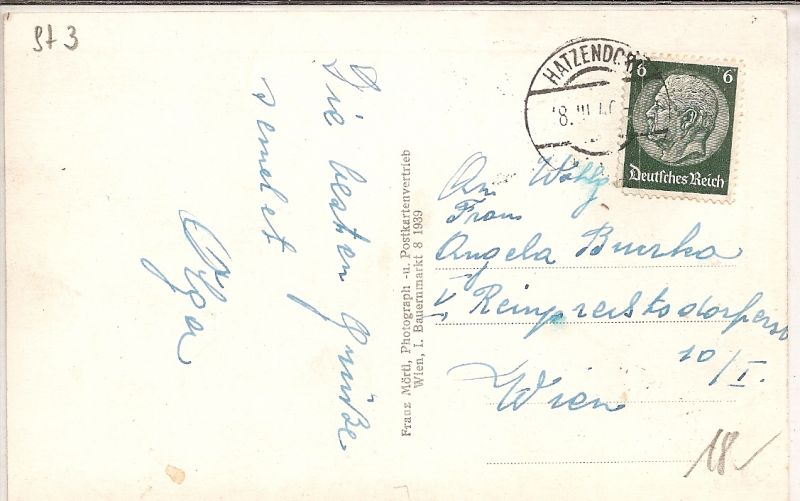 St 3
Die besten Grüße
sendet
Olga
Franz Mörtl, Photograph -u. Postkartenvertrieb
Wien, I. Bauernmarkt 8 1939
HATZENDORF
8. III. 40
6 6
Deutsches Reich
An Wohlg
Frau
Angela Burzka
V. Reinprechtsdorferstr
10/I.
Wien
18